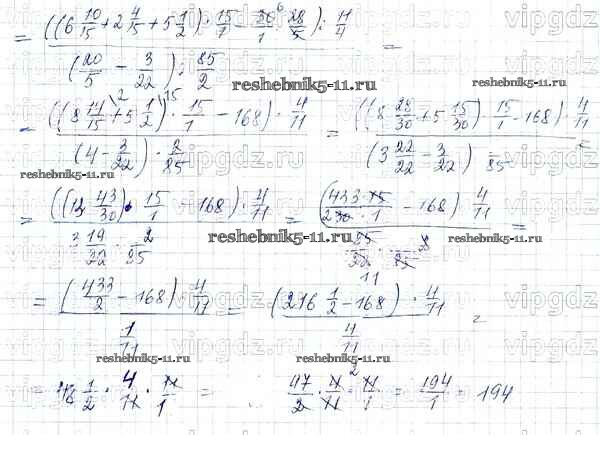 = ((6 10/15 + 2 4/15 + 5 1/2) · 15/1 - 30/1 · 28/5) : 11/4 =
(20/5 - 3/22) : 85/2
reshebnik5-11.ru
= ((8 14/15 + 5 1/2) · 15/1 - 168) · 4/11 = ((8 28/30 + 5 15/30) · 15/1 - 168) · 4/11 =
(4 - 3/22) · 2/85 (3 22/22 - 3/22) · 85
reshebnik5-11.ru
= ((13 43/30) · 15/1 - 168) · 4/11 = (433 · 15/30 · 1 - 168) · 4/11 =
3 19/22 · 2/85
reshebnik5-11.ru
11
= (433/2 - 168) · 4/11 = (216 1/2 - 168) · 4/11 =
1/11
reshebnik5-11.ru
reshebnik5-11.ru
= 48 1/2 · 4/11 · 11/1 = 97/2 · 4/11 · 11/1 = 194/1 = 194
vipgdz.ru